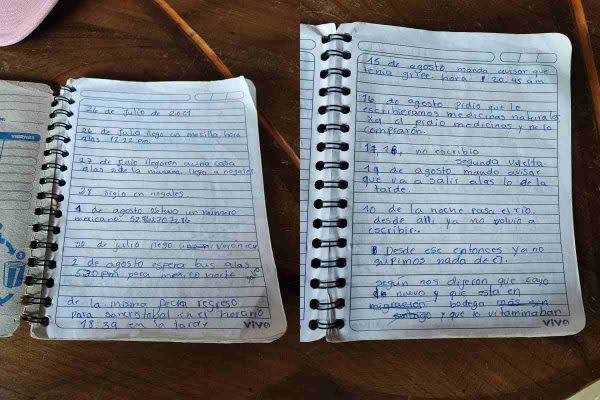 26 de Julio de 2021
26 de Julio llego en mesilla hora
alas 11:22 pm.
27 de julio llegoren a una casa
alas 2 de la mañana. llego a nogales
28 sigio en nogales
1 de agosto obtuvo un numero
mexicano:
30 de julio llego Veronica
2 de agosto espera bus alas
5:30 pm para mexico norte
de la misma fecha regreso
para sancristobal en el horario
18:39 en la tarde
VIVO
15 de agosto manda avisar que
tenia gripe. hora 20:45 am
16 de agosto pidio que le
escribieramos medicinas naturales
el pidio medicinas y no lo
compraron.
17, 18, no escribio
segunda vuelta
19 de agosto mando avisar
que va a salir alas 10 de la
tarde.
10 de la noche pasa el rio
desde alli ya no volvio a
escribir.
Desde ese entonces ya no
supimos nada de el.
según nos dijeron que cayo
de nuevo y que esta en
migracion bodega
santiago y que lo vitaminaban
VIVO